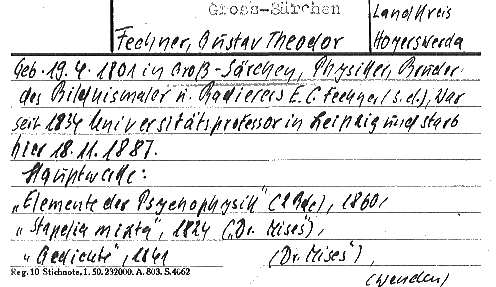 Gross-Särchen
Landkreis
Fechner, Gustav Theodor
Hoyerswerda
Geb. 19.4.1801 in Groß-Särchen, Physiker, Bruder
des Bildnismaler u. Radierers E.C. Fechner (s.d.), war
seit 1834 Universitätsprofessor in Leipzig und starb
hier 18.11.1887.
Hauptwerke:
„Elemente der Psychophysik" (2 Bde), 1860,
„Stapelia mixta", 1824 („Dr. Mises"),
„Gedichte", 1841 (Dr. Mises"),
Reg. 10 Stichnote, 1. 50. 232000. A. 803. S. 4662
(Wenden)